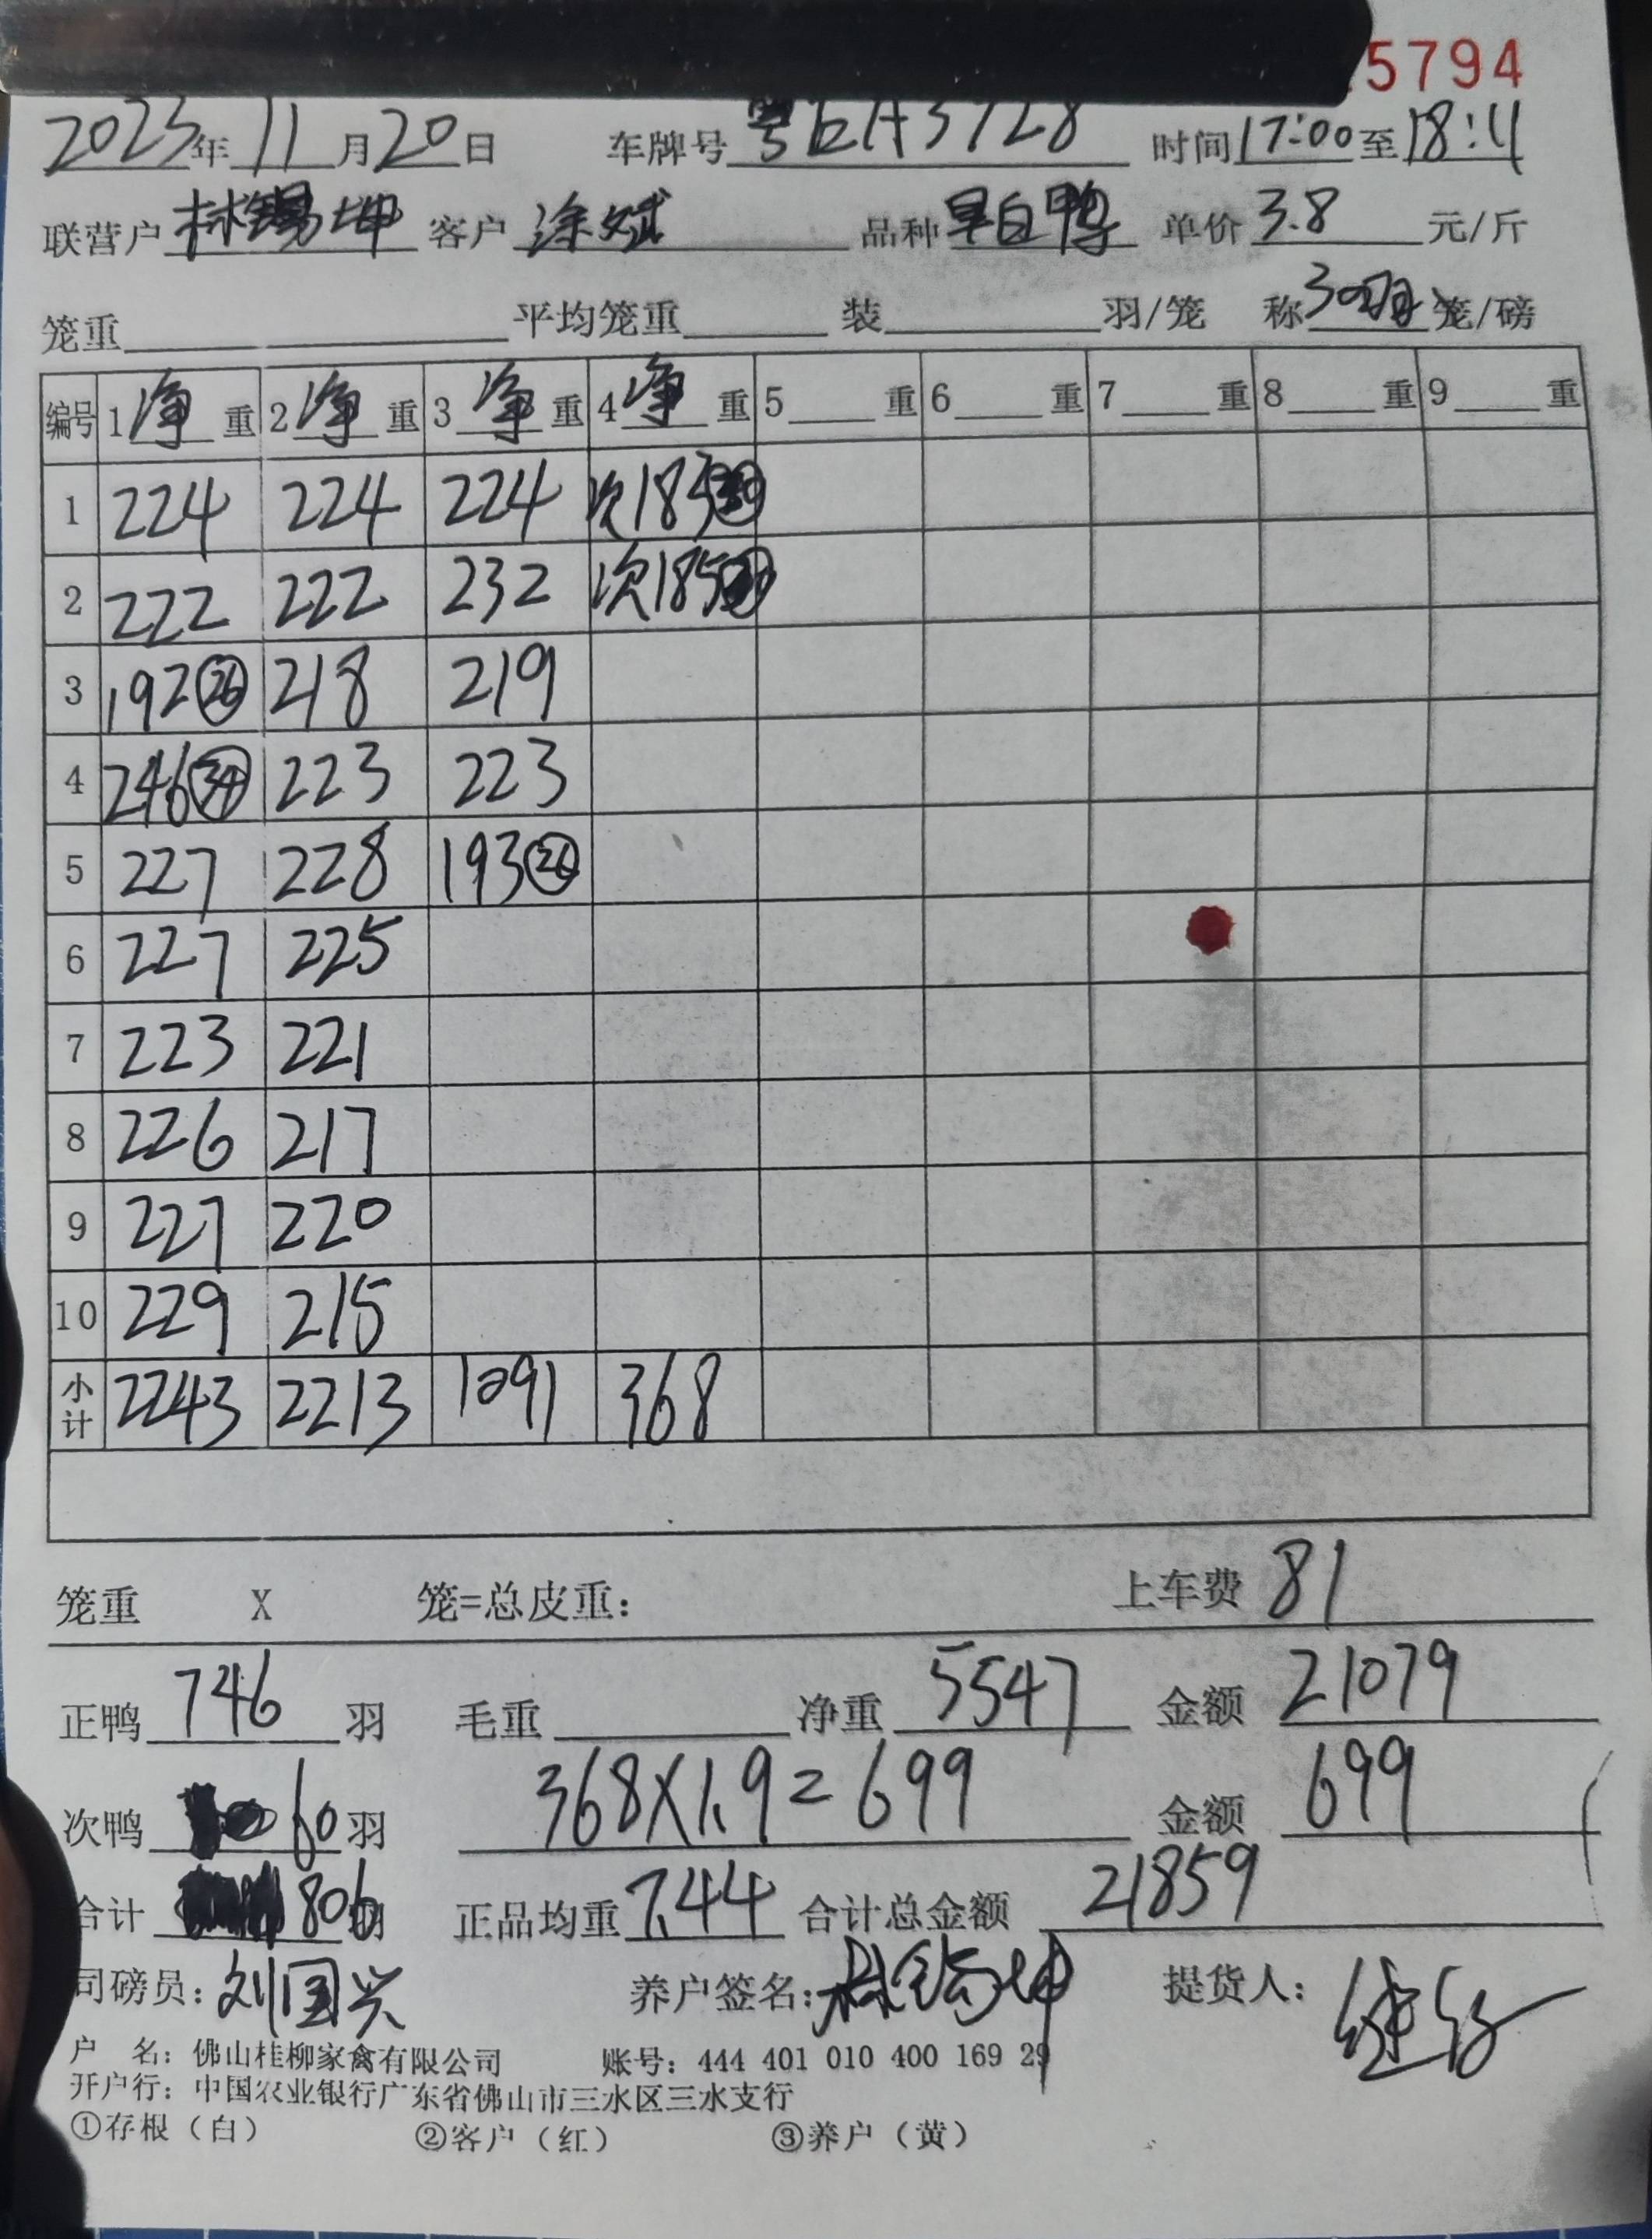 5794
2023年11月20日 车牌号 粤EA3728 时间17:00至18:11
联营户 林锡坤 客户 涂斌 品种 旱白鸭 单价 3.8 元/斤
笼重 平均笼重 装 羽/笼 称30羽笼/磅
编号 1净重 2净重 3净重 4净重 5重 6重 7重 8重 9重
1 224 224 224 次183
2 222 222 232 次185
3 192㉖ 218 219
4 246㉞ 223 223
5 227 228 193㉖
6 227 225
7 223 221
8 226 217
9 227 220
10 229 215
小计 2243 2213 1091 368
笼重 X 笼=总皮重: 上车费 81
正鸭 746 羽 毛重 净重 5547 金额 21079
次鸭 60羽 368X1.9=699 金额 699
合计 806羽 正品均重 7.44 合计总金额 21859
司磅员:刘国兴 养户签名:林锡坤 提货人:
户 名: 佛山桂柳家禽有限公司 账号: 444 401 010 400 169 29
开户行: 中国农业银行广东省佛山市三水区三水支行
①存根(白) ②客户(红) ③养户(黄)